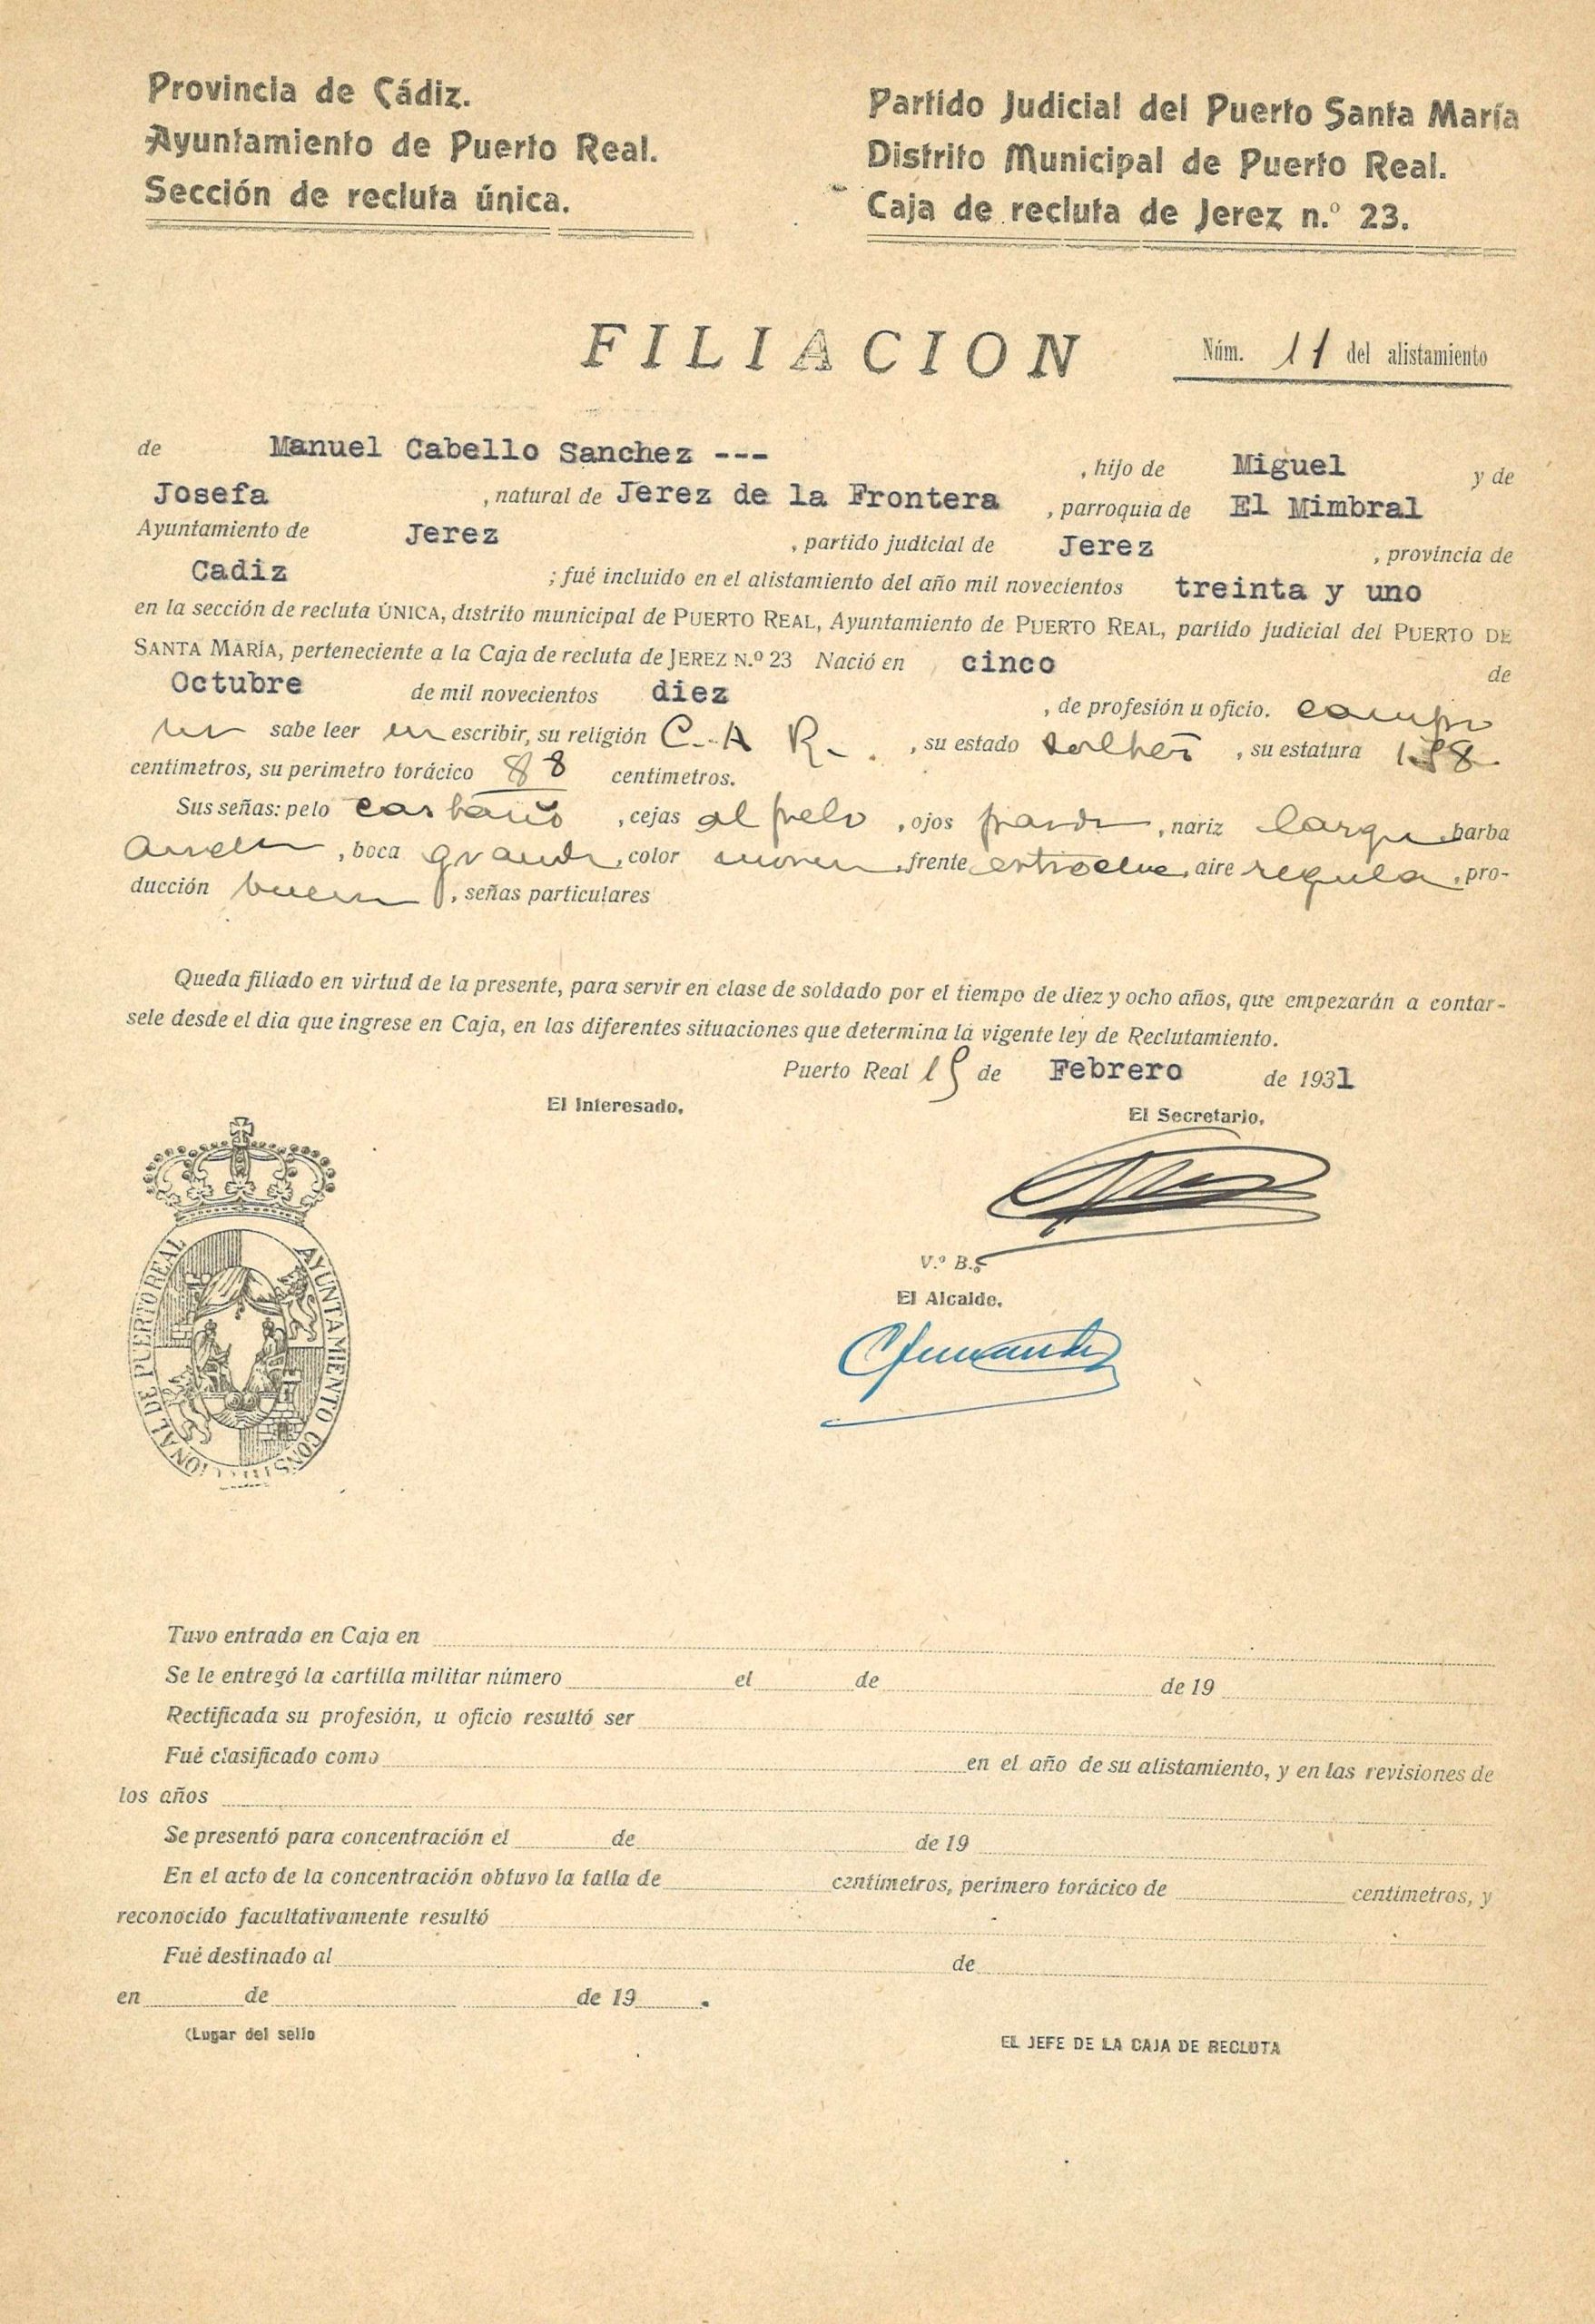 Provincia de Cádiz.
Ayuntamiento de Puerto Real.
Sección de recluta única.
Partido Judicial del Puerto Santa María
Distrito Municipal de Puerto Real.
Caja de recluta de Jerez n.º 23.
FILIACION
Núm. 11 del alistamiento
de Manuel Cabello Sanchez ---, hijo de Miguel y de
Josefa, natural de Jerez de la Frontera, parroquia de El Mimbral
Ayuntamiento de Jerez, partido judicial de Jerez, provincia de
Cadiz; fué incluido en el alistamiento del año mil novecientos treinta y uno
en la sección de recluta ÚNICA, distrito municipal de PUERTO REAL, Ayuntamiento de PUERTO REAL, partido judicial del PUERTO DE
SANTA MARÍA, perteneciente a la Caja de recluta de JEREZ N.º 23 Nació en cinco de
Octubre de mil novecientos diez, de profesión u oficio. campo
sabe leer escribir, su religión C. A R., su estado, su estatura
centímetros, su perimetro torácico 88 centimetros.
Sus señas: pelo castaño, cejas al pelo, ojos pardo, nariz larga barba
, boca grande, color moreno, frente estrecha, aire regular, pro-
ducción buena, señas particulares
Queda filiado en virtud de la presente, para servir en clase de soldado por el tiempo de diez y ocho años, que empezarán a contar-
sele desde el dia que ingrese en Caja, en las diferentes situaciones que determina la vigente ley de Reclutamiento.
Puerto Real 15 de Febrero de 1931
El Interesado,
El Secretario,
V.º B.º
El Alcalde,
AYUNTAMIENTO CONSTITUCIONAL DE PUERTO REAL
Tuvo entrada en Caja en
Se le entregó la cartilla militar número el de de 19
Rectificada su profesión, u oficio resultó ser
Fué clasificado como en el año de su alistamiento, y en las revisiones de
los años
Se presentó para concentración el de de 19
En el acto de la concentración obtuvo la talla de centímetros, perimero torácico de centimetros, y
reconocido facultativamente resultó
Fué destinado al de
en de de 19 .
(Lugar del sello
EL JEFE DE LA CAJA DE RECLUTA